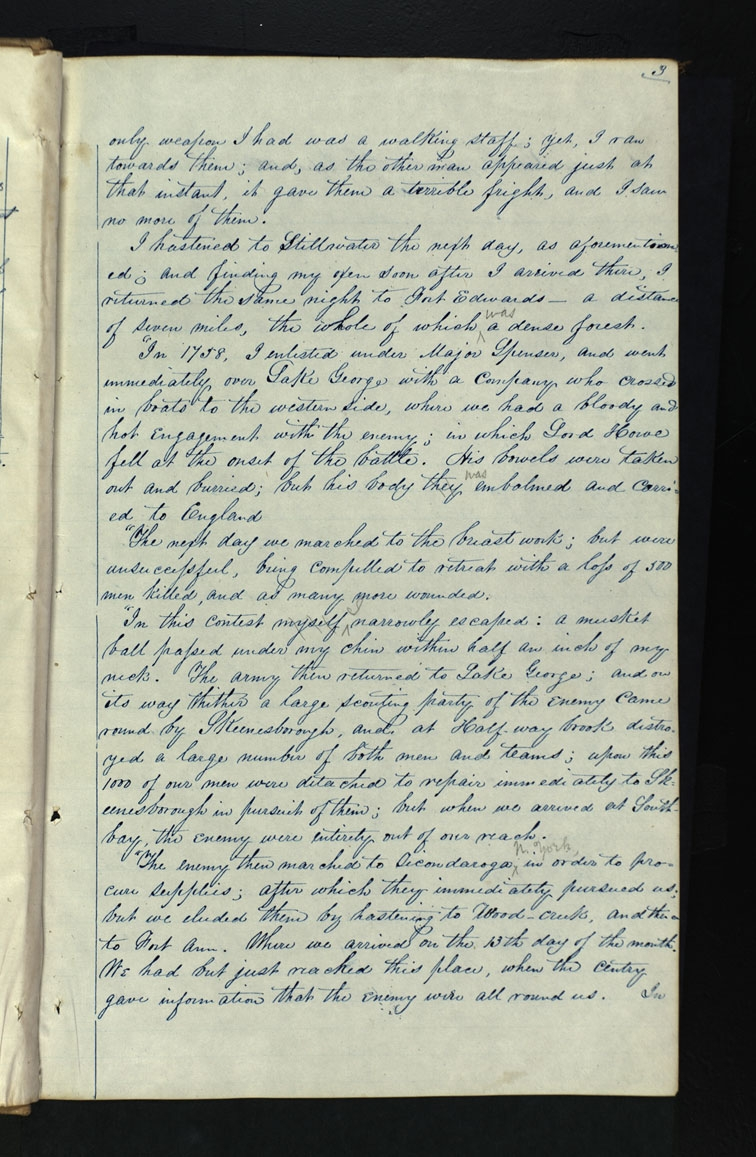 3
only weapon I had was a walking staff; yet, I ran
towards them; and, as the other man appeared just at
that instant, it gave them a terrible fright, and I saw
no more of them.
I hastened to Stillwater the next day, as aforemention-
ed; and finding my oxen soon after I arrived there, I
returned the same night to Fort Edwards — a distance
of seven miles, the whole of which was a dense forest.
"In 1758, I enlisted under Major Spenser, and went
immediately over Lake George with a company who crossed
in boats to the western side, where we had a bloody and
hot engagement with the enemy; in which Lord Howe
fell at the onset of the battle. His bowels were taken
out and burried; but his body they was embalmed and carri-
ed to England
"The next day we marched to the breast work; but were
unsuccessful, being compelled to retreat with a loss of 500
men killed, and as many more wounded.
"In this contest myself I narrowly escaped: a musket
ball passed under my chin within half an inch of my
neck. The army then returned to Lake George; and on
its way thither a large scouting party of the enemy came
round by Skeenesborough, and, at Half-way brook distro-
yed a large number of both men and teams; upon this
1000 of our men were detached to repair immediately to Sk-
eenesborough in pursuit of them; but when we arrived at South-
bay, the enemy were entirely out of our reach.
"The enemy then marched to Ticondaroga, N. York, in order to pro-
cure supplies; after which they immediately pursued us;
but we eluded them by hastening to Wood-creek, and then
to Fort Ann. Where we arrived on the 13th day of the month.
We had but just reached this place, when the centry
gave information that the enemy were all round us. In